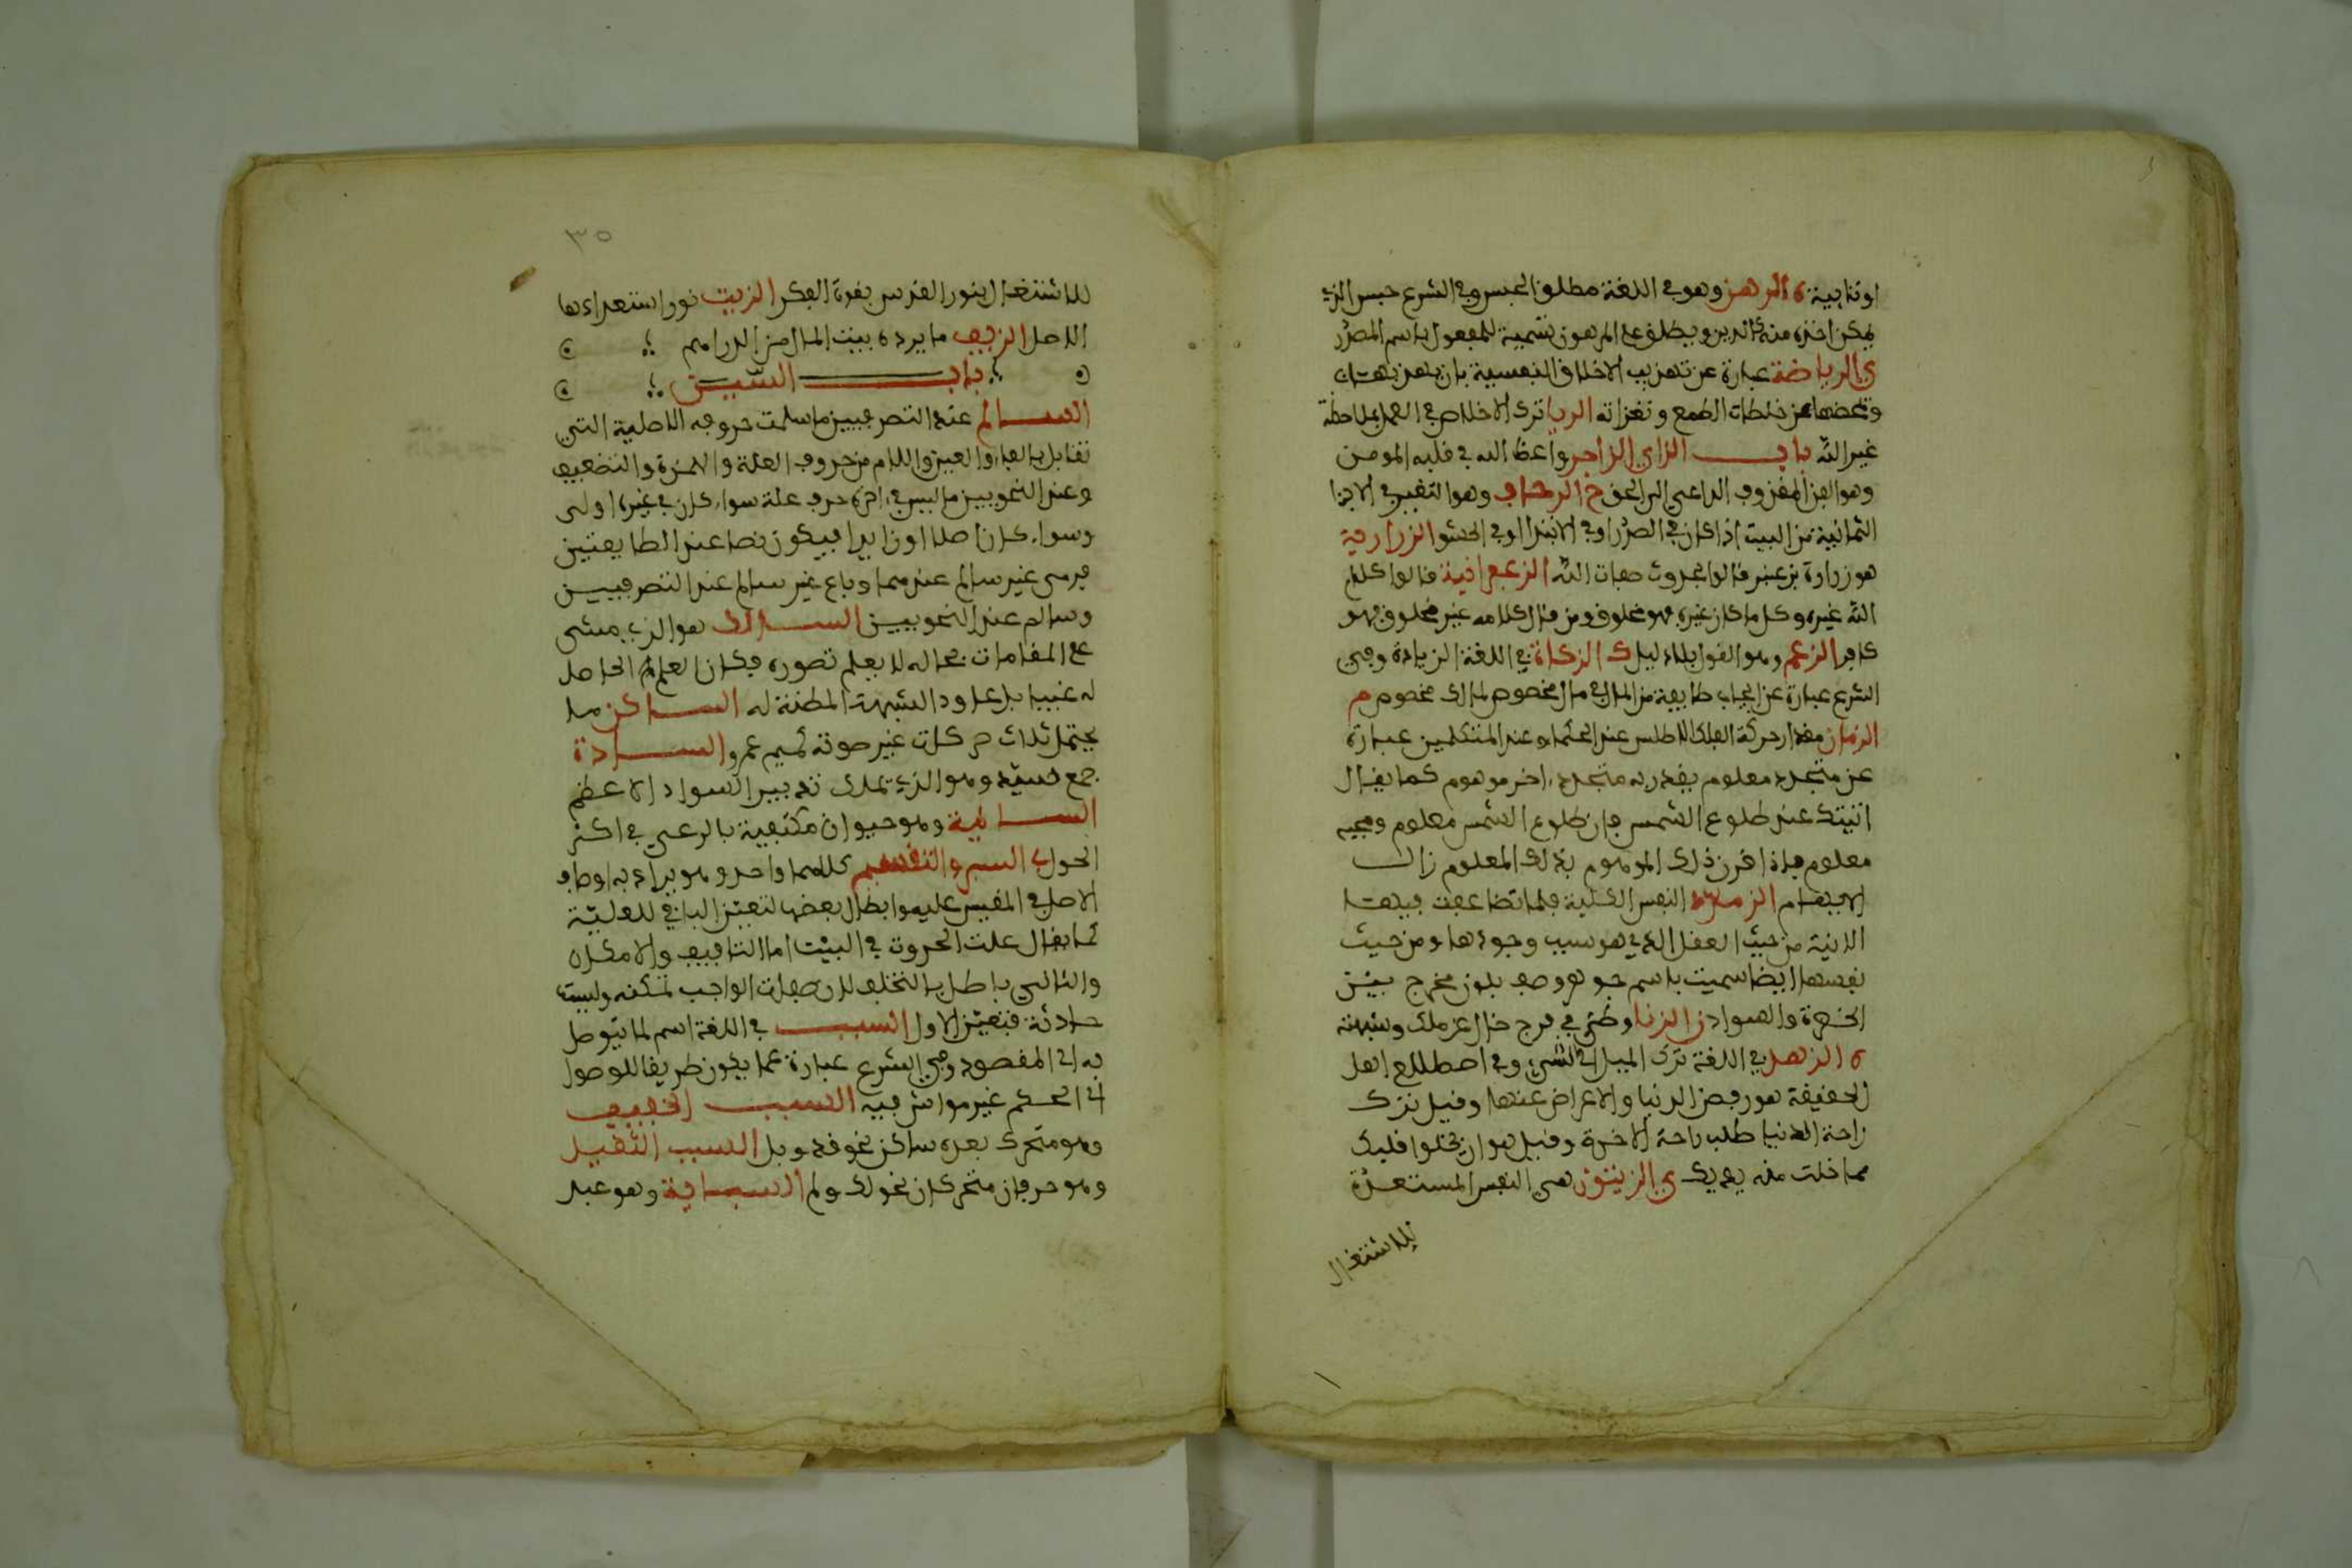 اوتنابية ه الرهن وهو في اللغة مطلق الحبس وفي الشرع حبس الذي
يمكن اخذه منه كالدين ويطلق على المرهون تسمية للمفعول باسم المصدر
ي الرياضة عبارة عن تهذيب الاخلاق النفسية بان
خلطات الطمع ونغزاته الريا ترك الاخلاص في العمل بملاحظة
غير الله باب الزاي الزاجر واعظ الله في قلب المومن
وهو النور المقذوف الداعي الى الحق خ الزحاف وهو التغيير في الاجزا
الثمانية من البيت اذا كان في الصدر او في الابتدا او في الحشو الزرارية
هو زرارة بن قالوا بحدوث صفات الله الزعفرانية قالوا كلام
الله غيره وكل ما كان غيره فهو مخلوق ومن قال كلامه غير مخلوق فهو
كافر الزعم وهو القول بلا دليل ك الزكاة في اللغة الزيادة وفي
الشرع عبارة عن ايجاب طايفة من المال في مال مخصوص لمالك مخصوص م
الزمان مقدار حركة الفلك الاطلس عند الحكماء وعند المتكلمين عبارة
عن متجدد معلوم يقدر به متجدد اخر موهوم كما يقال
اتيتك عند طلوع الشمس فان طلوع الشمس معلوم ومجيه
معلوم فاذا اقرن ذلك الموهوم بذلك المعلوم زال
الابهام الزمردة النفس الكلية فلما تضاعفت فيها
الانية من حيث العقل الذي هو سبب وجودها ومن حيث
نفسها ايضا سميت باسم جوهر وصف بلون ممزج بين
الخضرة والسواد ن الزنا وطئ في فرج خال عن ملك وشبهة
ه الزهد في اللغة ترك الميل الى الشيء وفي اصطلاح اهل
الحقيقة هو رفض الدنيا والاعراض عنها وقيل ترك
راحة الدنيا طلب راحة الاخرة وقيل هو ان يخلوا قلبك
مما خلت منه يديك ي الزيتون هي النفس المستعدة
للاشتغال
٣٥
للاشتغال بنور القدس بقوة الفكر الزيت نور استعدادها
الاصل الزيف ما يرده بيت المال من الدراهم
باب السين
السالم عند التصرفيين ما سلمت حروفه الاصلية التي
تقابل بالفاء والعين واللام من حروف العلة والهمزة والتضعيف
وعند النحويين ما ليس في اخره حرف علة سواء كان في غيره اولى
وسواء كان اصلا او زايدا فيكون نصا عند الطايفتين
فرمى غير سالم عندهما وباع غير سالم عند التصرفيين
وسالم عند النحويين السالك هو الذي مشى
على المقامات بحاله لا بعلم تصوره فكان العلم الحاصل
له عينيا الشبهة المظنة له الساكن ما
يحتمل ثلاث حركات غير صوته كميم عمرو السادة
جمع سيد وهو الذي يملك تدبير السواد الاعظم
السائمة وهو حيوان مكتفية بالرعي في اكثر
الحول ب السبر والتقسيم كلاهما واحد وهو يراد به اوصاف
الاصل في المقيس عليه وابطال بعضها لتعين الباقي للعلية
كما يقال علت الحدوث في البيت اما التاليف والامكان
والثاني باطل بالتخلف لان صفات الواجب ممكنة وليست
حادثة فتعين الاول السبب في اللغة اسم لما يتوصل
به الى المقصود وفي الشرع عبارة عما يكون طريقا للوصول
الى الحكم غير موثر فيه السبب الخفيف
وهو متحرك بعده ساكن نحو قد وبل السبب الثقيل
وهو حرفان متحركان نحو لك ولم السبايية وهو عبد